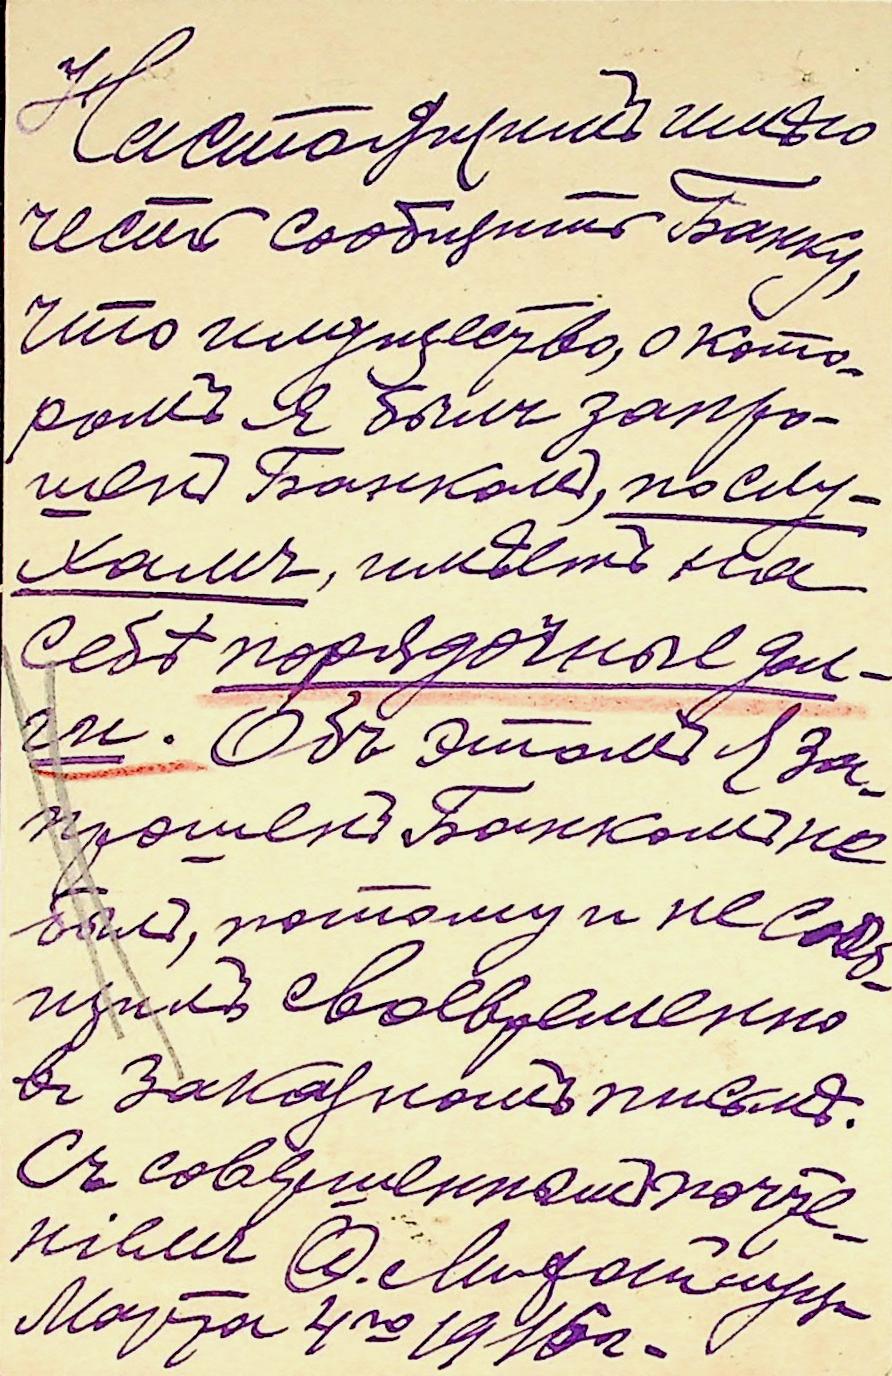 Настоящимъ имѣю
честь сообщить Банку,
что имущество, о кото-
ромъ я былъ запро-
шенъ Банкомъ, по слу-
хамъ, имѣетъ на
себѣ порядочные дол-
ги. Объ этомъ я за-
прошенъ Банкомъ не
былъ, потому и не сооб-
щилъ своевременно
въ заказномъ письмѣ.
Съ совершеннымъ почте-
ніемъ
Марта 4го 1916 г.